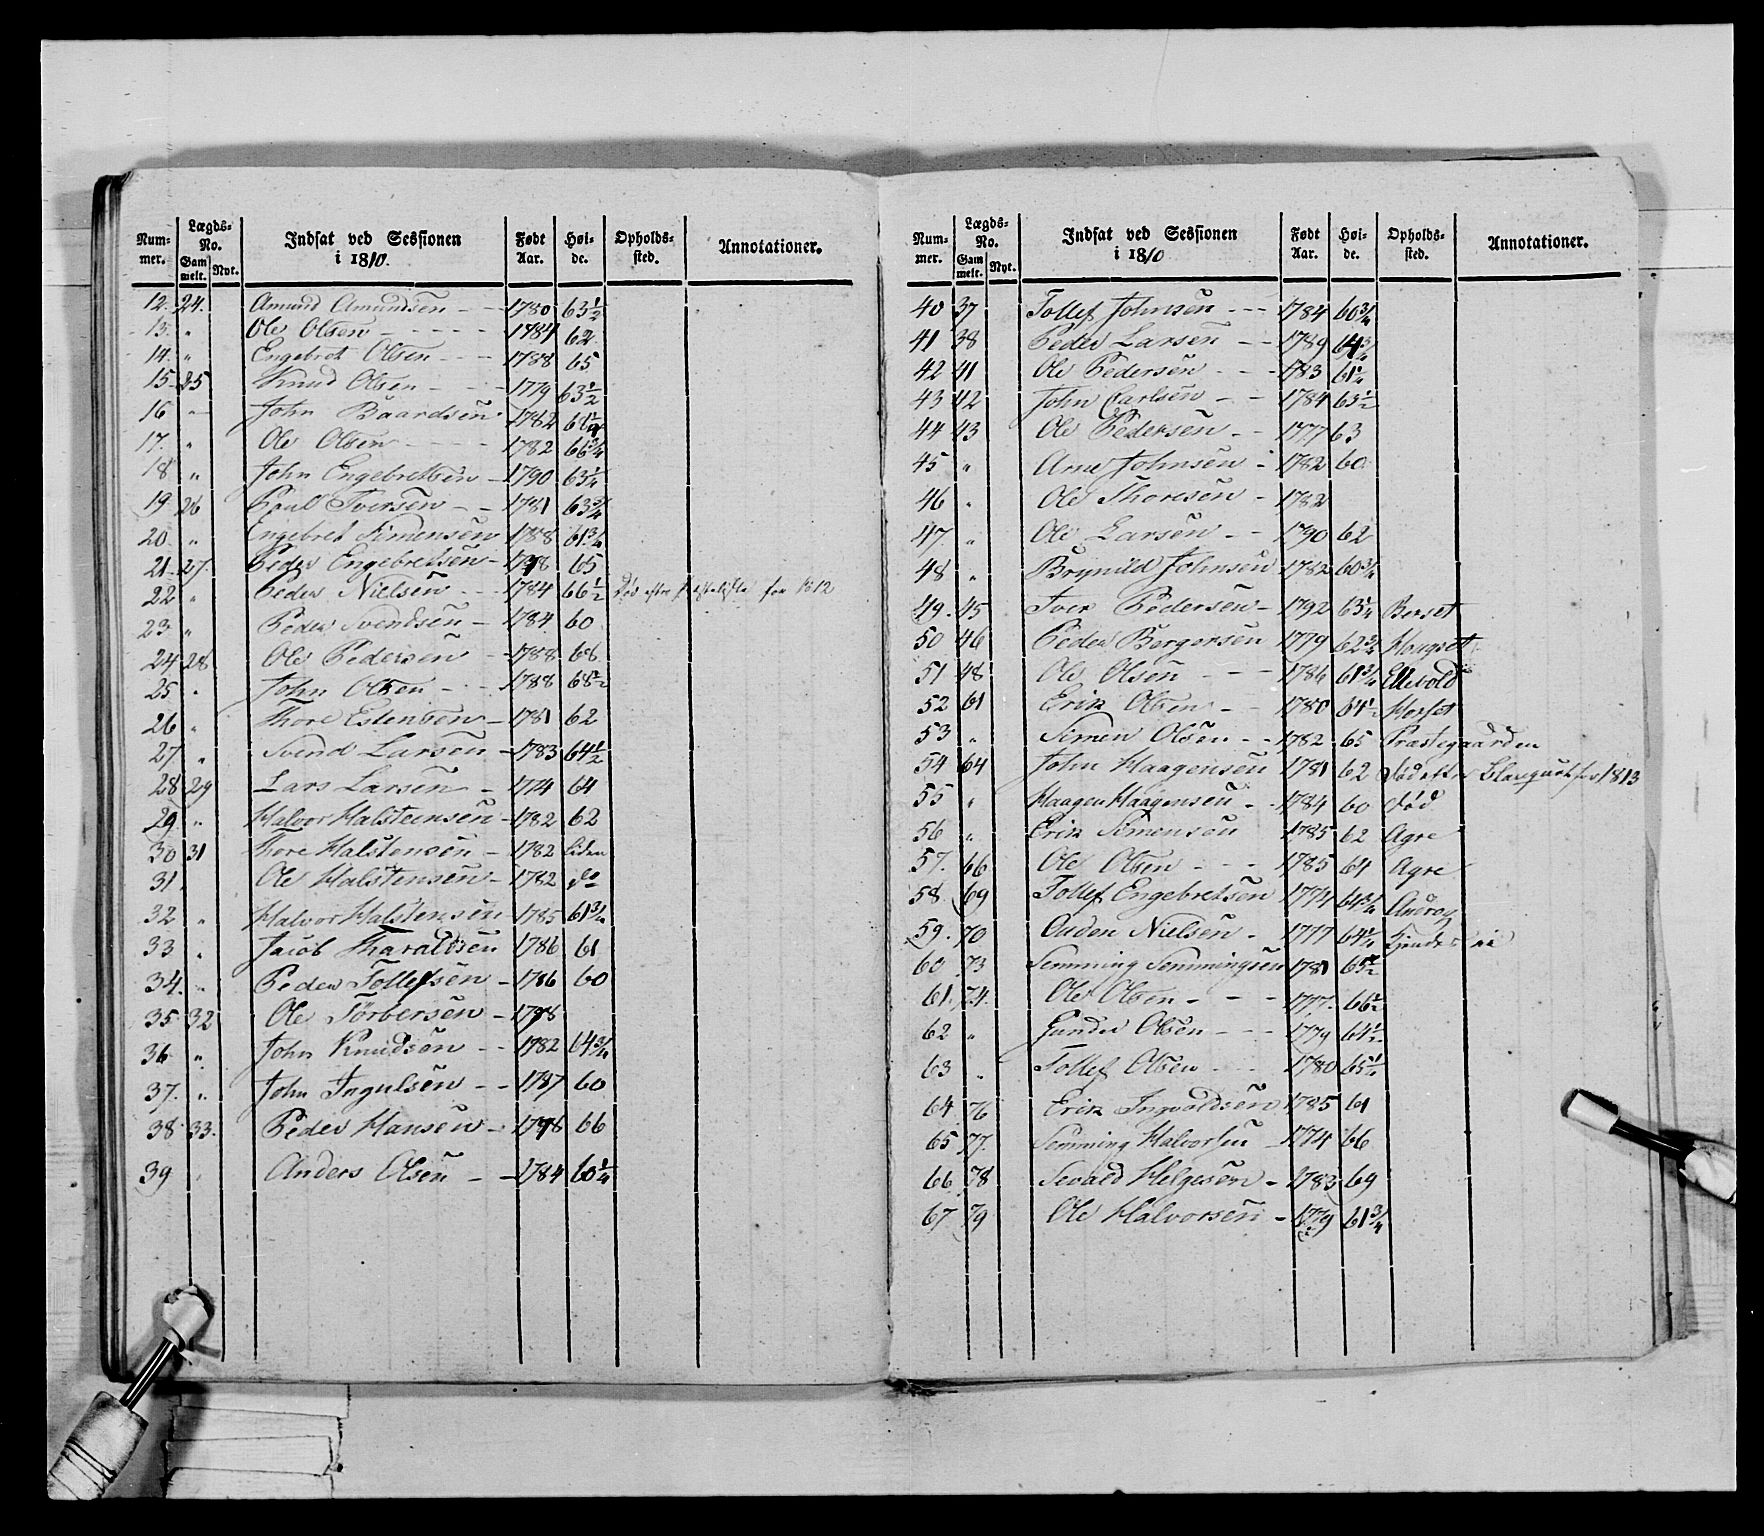 Num-mer. Lægds-No. Gam melt. Nyt. Indsat ved Sessionen i 1810. Født Aar. Høi-de. Opholds-sted. Annotationer.
12. 24. Amund Amundsen - - 1780 63 1/2
13. " Ole Olsen - - - - - 1784 62
14. " Engebret Olsen - - - 1788 65
15. 25 Knud Olsen - - - 1779 63 1/2
16 " John Baardsen 1782
17. " Ole Olsen - - - - 1782 66 3/4
18 " John Engebretsen - 1790 63 1/4
19 26 Poul Iversen - - 1781 63 3/4
20. " Engebret Simensen 1788 61 3/4
21. 27. Peder Engebretsen - 65
22 " Peder Nielsen - - - 1784 66 1/2 Død efter for 1812
23 " Peder Svendsen - 1784. 60
24 28 Ole Pedersen - 1788 68
25 " John Olsen - - - 1788 68 1/2
26 " Thore Estensen - 1781 62
27 " Svend Larsen - 1783 64 1/2
28 29 Lars Larsen - 1774 64
29 " Halvor Halsteensen - 1782 62
30 31 Thore Halstensen - 1782 liden
31 Ole Halstensen - 1782 do
32 " Halvor Halstensen 1785 61 3/4
33 " Jacob Tharaldsen 1786 61
34. " Peder Tollefsen - 1786 60
35 32 Ole Torbersen - 1778
36 " John Knudsen - - 1782 64 3/4
37. " John Ingulsen - - 1787 60
38 33. Peder Hansen - 1778 66
39 " Anders Olsen - - 1784 60 1/4
Num-mer. Lægds-No. Gam melt. Nyt. Indsat ved Sessionen i 1810 Født Aar. Høi-de. Opholds-sted. Annotationer.
40 37 Tollef Johnsen - - - 1784 60 3/4
41 38 Peder Larsen - - 1789 64 3/4
42 41 Ole Pedersen - - - 1783 61 1/4
43 42 John Carlsen - - 1784 63 1/2
44 43 Ole Pedersen - - 1777 63
45 " Arne Johnsen - 1782 60
46 " Ole Thoresen - 1782
47 " Ole Larsen - - 1790 62
48 " Brynild Johnsen 1782 60 3/4
49. 45 Iver Pedersen - 1792 63 1/4 Berset
50 46 Peder Bergersen 1779 62 3/4 Haugset
51 48 Ole Olsen - - - 1786 61 3/4 Ellevold
52 61 Erik Olsen - - 1780 64 1/2 Morset
53 " Simen Olsen - - 1782 65 Præstegaarden
54 64 John Haagensen 1781 62 død efter for 1813
55 " Haagen Haagensen - - 1784 60 død
56 " Erik Simensen 1785 62 Agre
57. 66 Ole Olsen - - - 1785 64 Agre
58 69 Tollef Engebretsen 1774 64 3/4
59. 70 Auden Nielsen - 1777 64 1/4
60 73 Semming Semmingsen 1781
61. 74. Ole Olsen - - - 1777. 66 1/2
62 " Gunder Olsen - - - 1779 64 1/2
63 " Tollef Olsen - - - 1780 65 1/4
64 76 Erik Ingvoldsen 1785 61
65 77. Semming Halvorsen - 1774 66
66 78 Sevald Helgesen - 1783 69
67 79 Ole Halvorsen - 1779 61 3/4